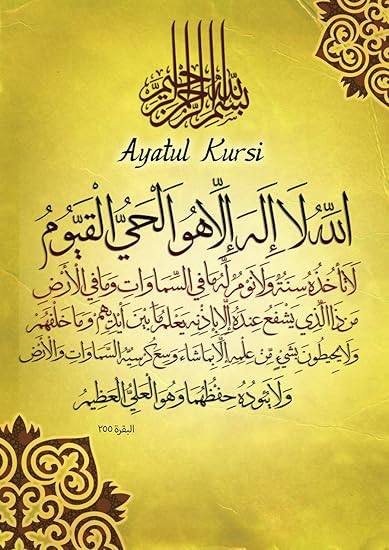 بسم الله الرحمن الرحيم
Ayatul Kursi
اللهُ لَا إِلَهَ إِلَّا هُوَ الْحَيُّ الْقَيُّومُ
لَا تَأْخُذُهُ سِنَةٌ وَلَا نَوْمٌ لَّهُ مَا فِي السَّمَاوَاتِ وَمَا فِي الْأَرْضِ
مَن ذَا الَّذِي يَشْفَعُ عِنْدَهُ إِلَّا بِإِذْنِهِ يَعْلَمُ مَا بَيْنَ أَيْدِيهِمْ وَمَا خَلْفَهُمْ
وَلَا يُحِيطُونَ بِشَيْءٍ مِّنْ عِلْمِهِ إِلَّا بِمَا شَاءَ وَسِعَ كُرْسِيُّهُ السَّمَاوَاتِ وَالْأَرْضَ
وَلَا يَئُودُهُ حِفْظُهُمَا وَهُوَ الْعَلِيُّ الْعَظِيمُ
البقرة ٢٥٥